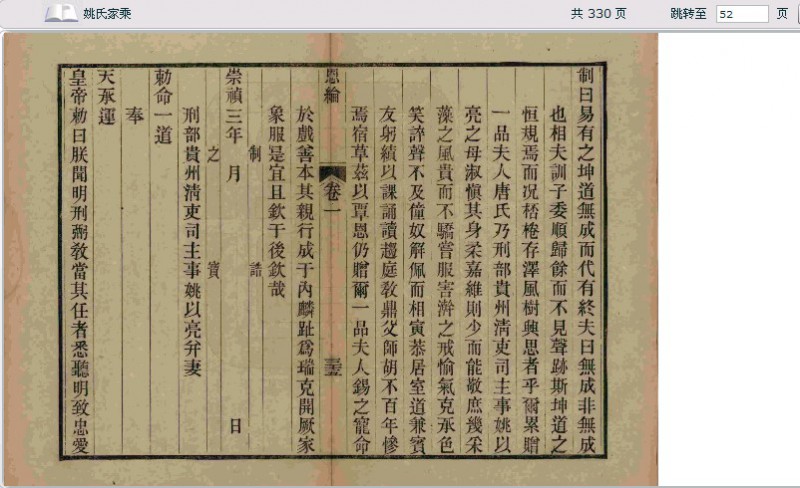 姚氏家乘
共 330 页
跳转至 52 页
制曰易有之坤道無成而代有終夫曰無成非無成
也相夫訓子委順歸餘而不見聲跡斯坤道之
恒規焉而况桮棬存澤風樹興思者乎爾累贈
一品夫人唐氏乃刑部貴州清吏司主事姚以
亮之母淑慎其身柔嘉維則少而能敬庶幾采
藻之風貴而不驕嘗服害澣之戒愉氣克承色
笑誶聲不及僮奴解佩而相寅恭居室道兼賓
友躬績以課誦讀趨庭教鼎父師胡不百年慘
焉宿草茲以覃恩仍贈爾一品夫人錫之寵命
恩綸
卷一
於戲善本其親行成于內麟趾爲瑞克開厥家
象服是宜且欽于後欽哉
制 誥
崇禎三年 月 日
之 寳
刑部貴州清吏司主事姚以亮幷妻
勅命一道
奉
天承運
皇帝勅曰朕聞明刑弼敎當其任者悉聽明致忠愛